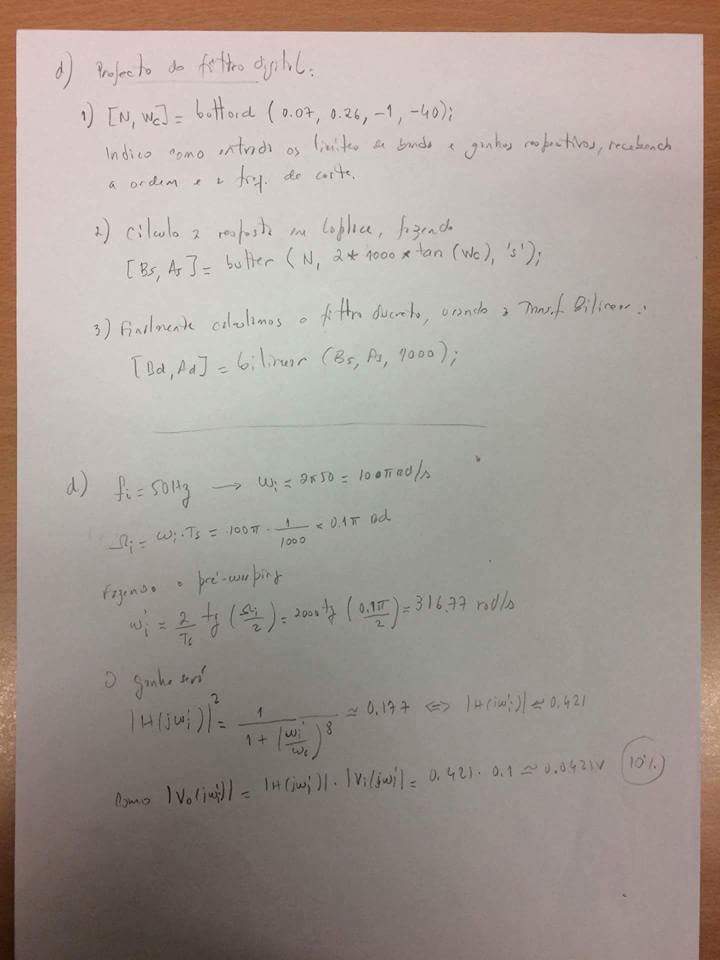 d) Projecto do filtro digital:
1) [N, Wc] = buttord (0.07, 0.26, -1, -40);
Indico como entrada os limites de banda e ganhos respectivos, recebendo
a ordem e a freq. de corte.
2) Calculo a resposta em Laplace, fazendo
[Bs, As] = butter (N, 2*1000*tan (Wc), 's');
3) Finalmente calculamos o filtro discreto, usando a Transf. Bilinear:
[Bd, Ad] = bilinear (Bs, As, 1000);
d) fi = 50Hz → ωi = 2π50 = 100π rad/s
Ωi = ωi·Ts = 100π · 1/1000 = 0.1π rad
Fazendo o pré-warping
ωi' = 2/Ts tg (Ωi/2) = 2000 tg (0.1π/2) = 316.77 rad/s
O ganho será
|H(jωi')|² = 1/(1 + (ωi'/ωc)^8) ≃ 0.177 ⇔ |H(jωi')| ≈ 0.421
Como |Vo(jωi')| = |H(jωi')| · |Vi(jωi')| = 0.421 · 0.1 ≃ 0.0421V (10%)